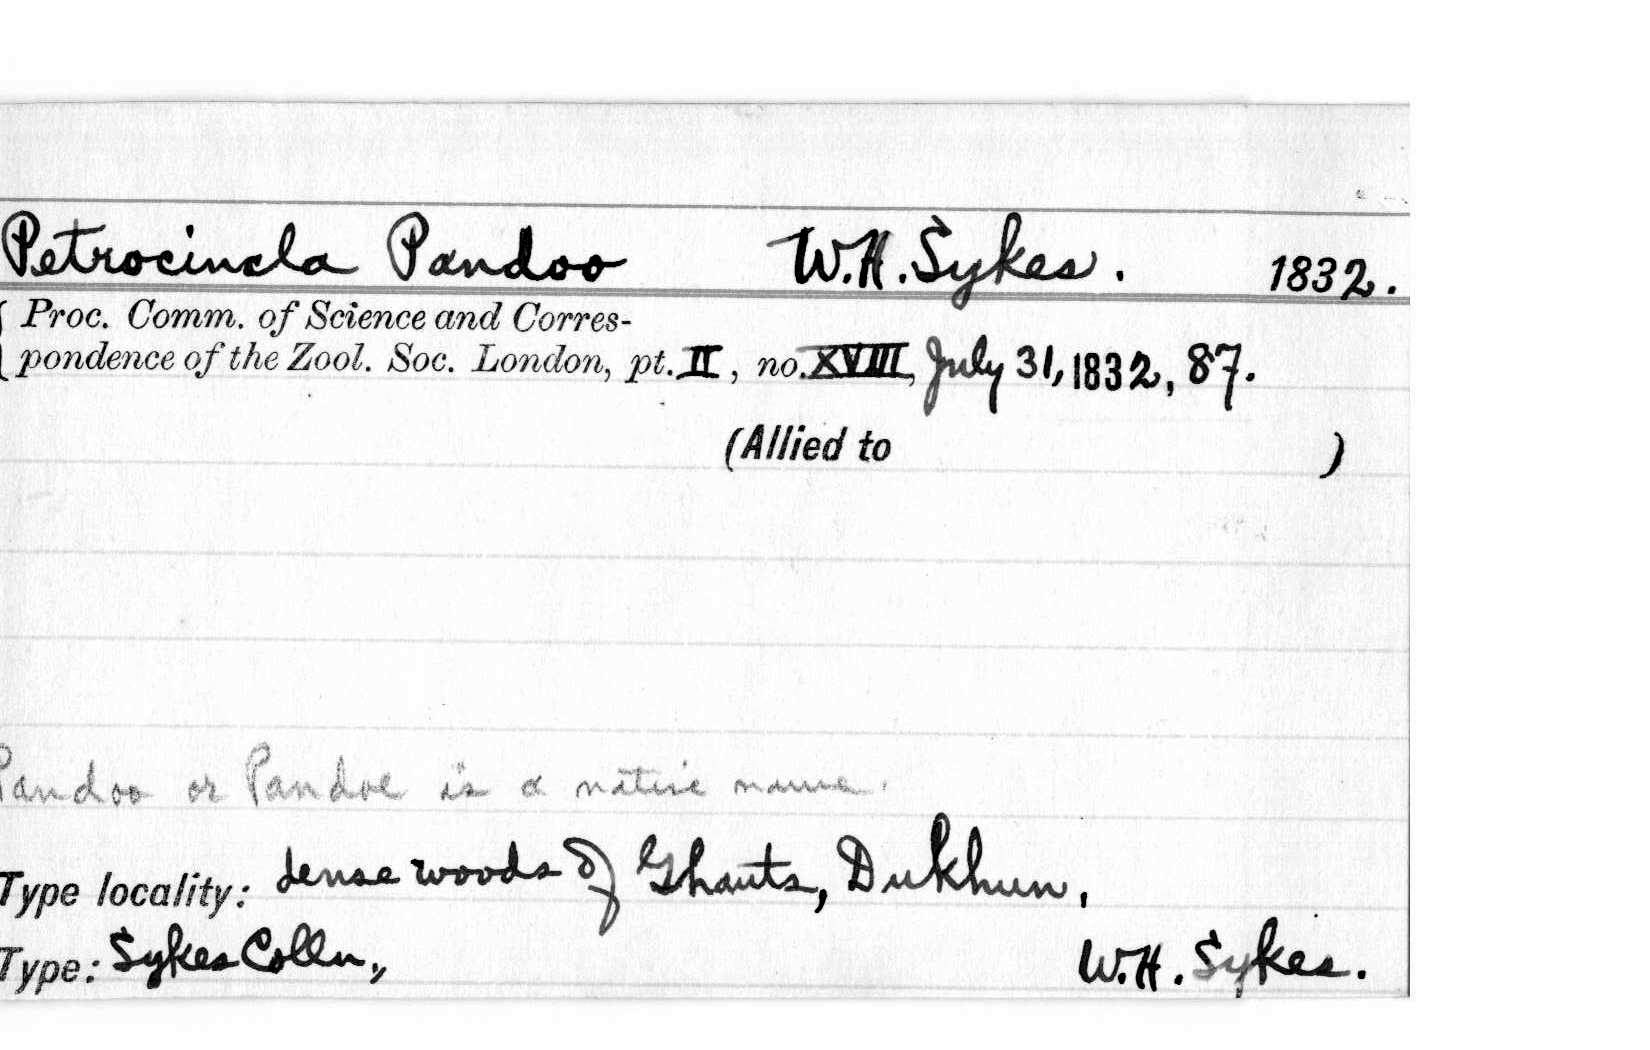 Petrocincla Pandoo W.H. Sykes. 1832.
Proc. Comm. of Science and Corres-
pondence of the Zool. Soc. London, pt. II, no. XVIII, July 31, 1832, 87.
(Allied to )
Pandoo or Pandoe is a native name.
Type locality: dense woods of Ghauts, Dukhun,
Type: Sykes Colln., W.H. Sykes.